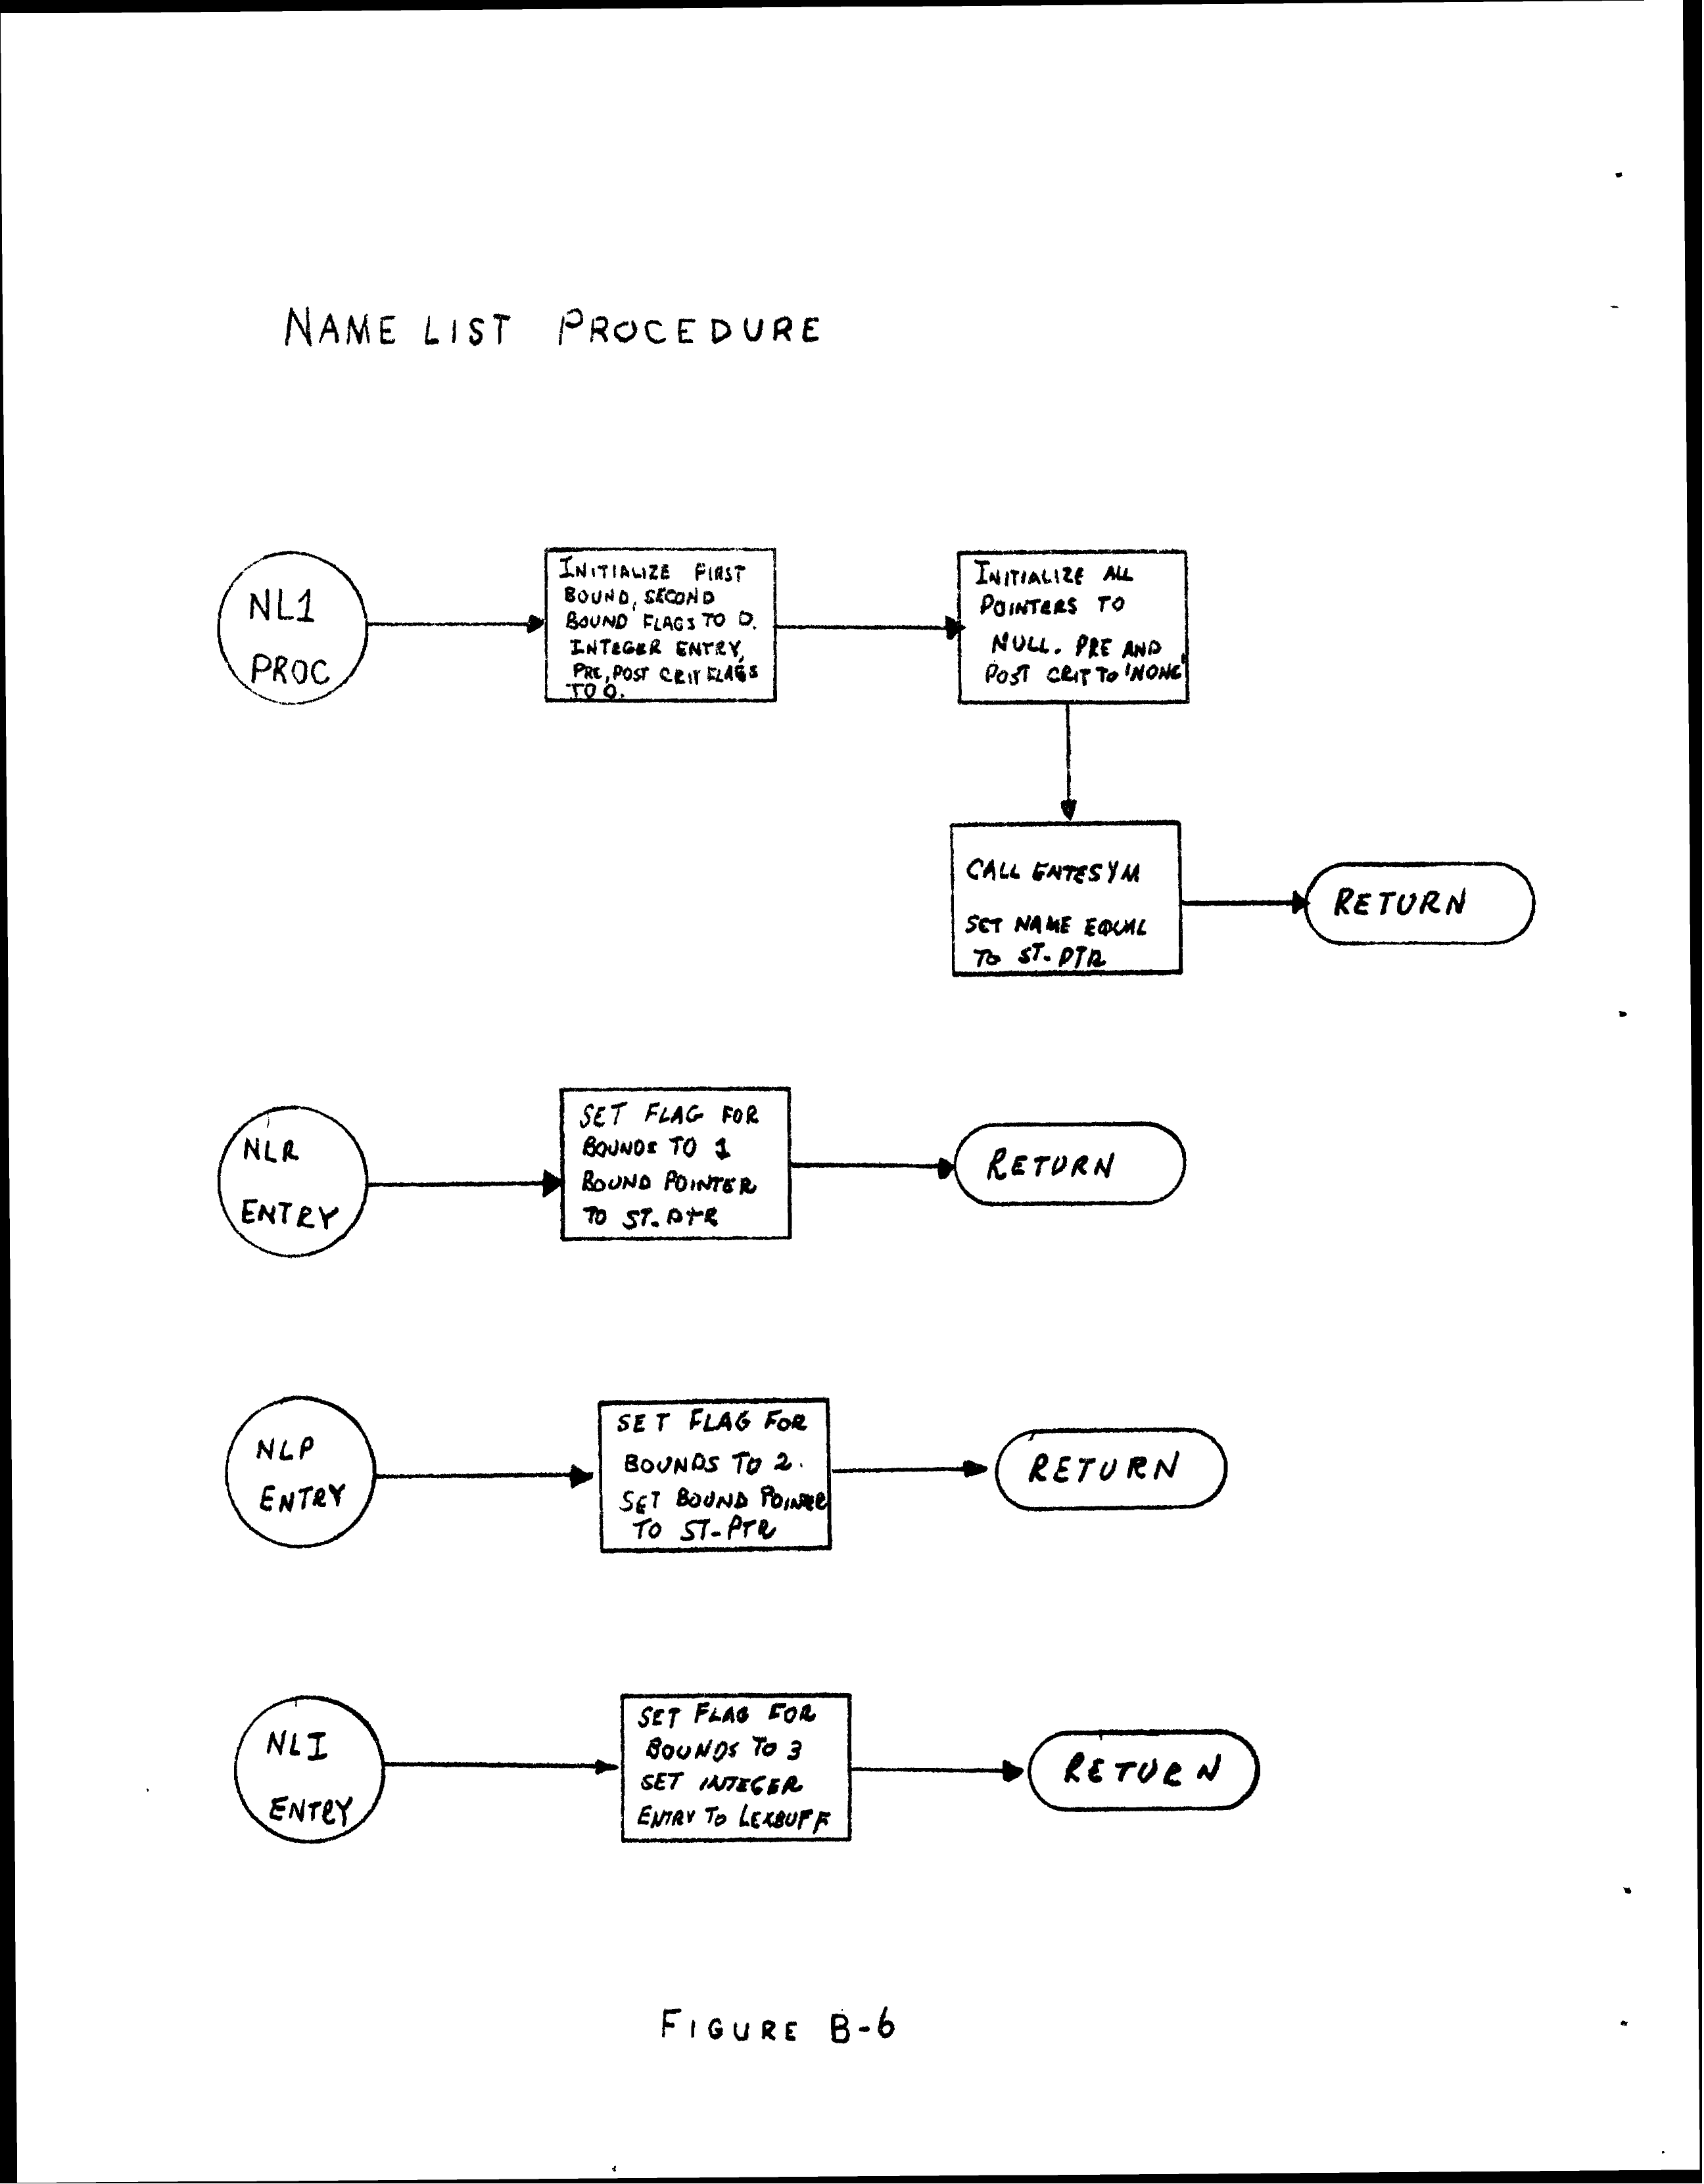 NAME LIST PROCEDURE
NL1
PROC
INITIALIZE FIRST
BOUND, SECOND
BOUND FLAGS TO 0.
INTEGER ENTRY,
PRE, POST CRIT FLAGS
TO 0.
INITIALIZE ALL
POINTERS TO
NULL. PRE AND
POST CRIT TO 'NONE'
CALL ENTESYM
SET NAME EQUAL
TO ST-PTR
RETURN
NLR
ENTRY
SET FLAG FOR
BOUNDS TO 1
BOUND POINTER
TO ST-PTR
RETURN
NLP
ENTRY
SET FLAG FOR
BOUNDS TO 2.
SET BOUND POINTER
TO ST-PTR
RETURN
NLI
ENTRY
SET FLAG FOR
BOUNDS TO 3
SET INTEGER
ENTRY TO LEXBUFF
RETURN
FIGURE B-6